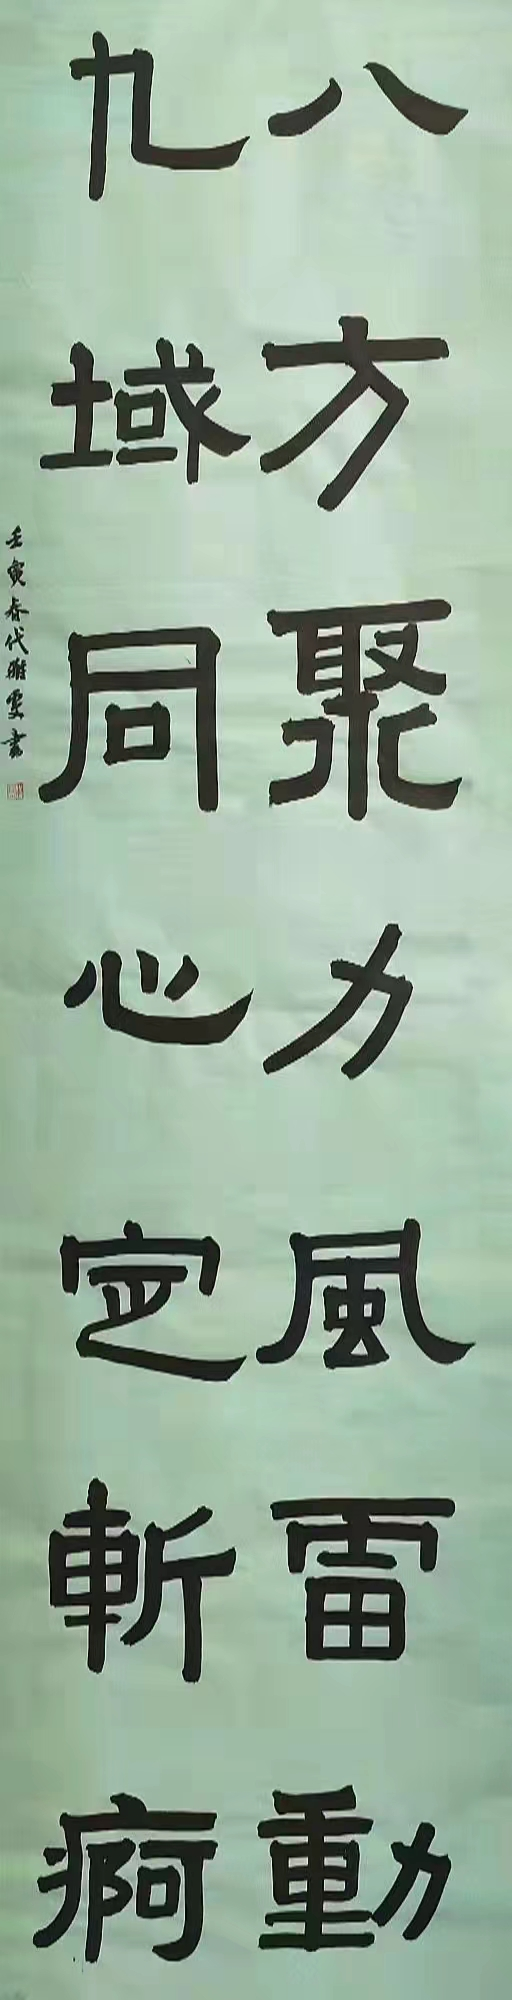 八方聚力風雷動
九域同心定斬痾
壬寅春代謝雯書